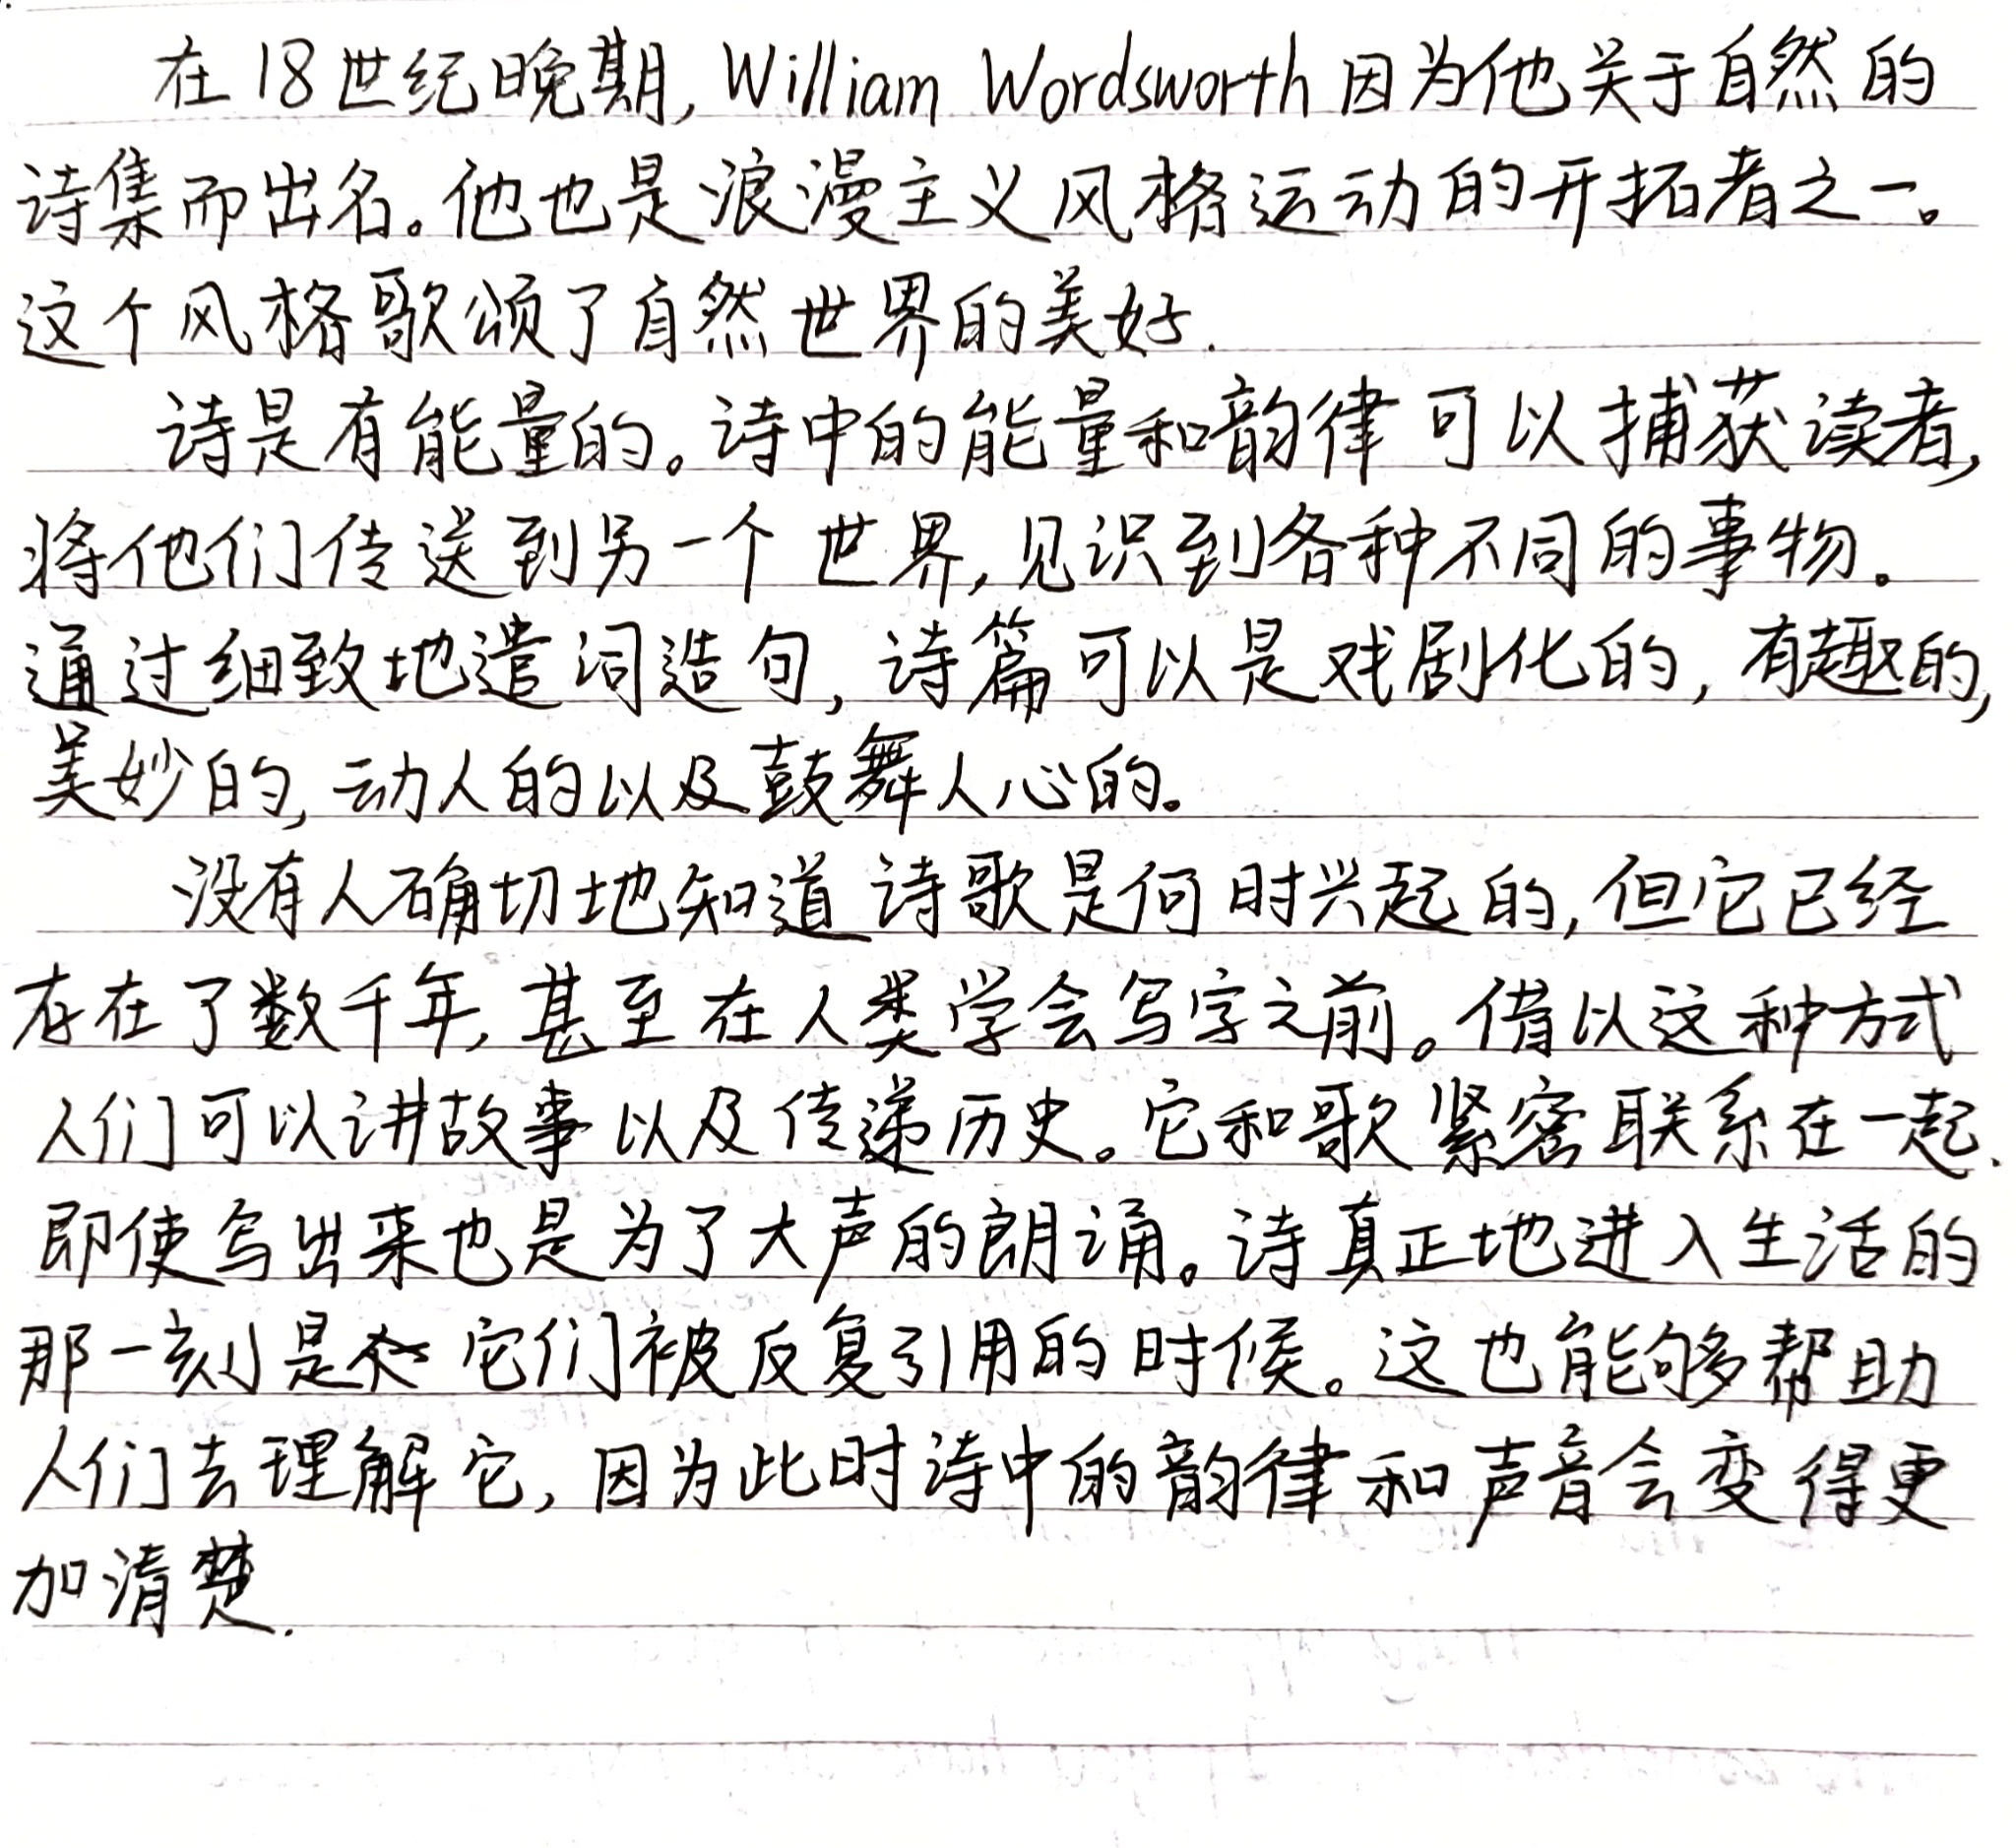 在18世纪晚期, William Wordsworth 因为他关于自然的
诗集而出名。他也是浪漫主义风格运动的开拓者之一。
这个风格歌颂了自然世界的美好.
诗是有能量的。诗中的能量和韵律可以捕获读者,
将他们传送到另一个世界,见识到各种不同的事物。
通过细致地遣词造句,诗篇可以是戏剧化的,有趣的,
美妙的,动人的以及鼓舞人心的。
没有人确切地知道诗歌是何时兴起的,但它已经
存在了数千年,甚至在人类学会写字之前。借以这种方式
人们可以讲故事以及传递历史。它和歌紧密联系在一起.
即使写出来也是为了大声的朗诵。诗真正地进入生活的
那一刻是它们被反复引用的时候。这也能够帮助
人们去理解它,因为此时诗中的韵律和声音会变得更
加清楚.